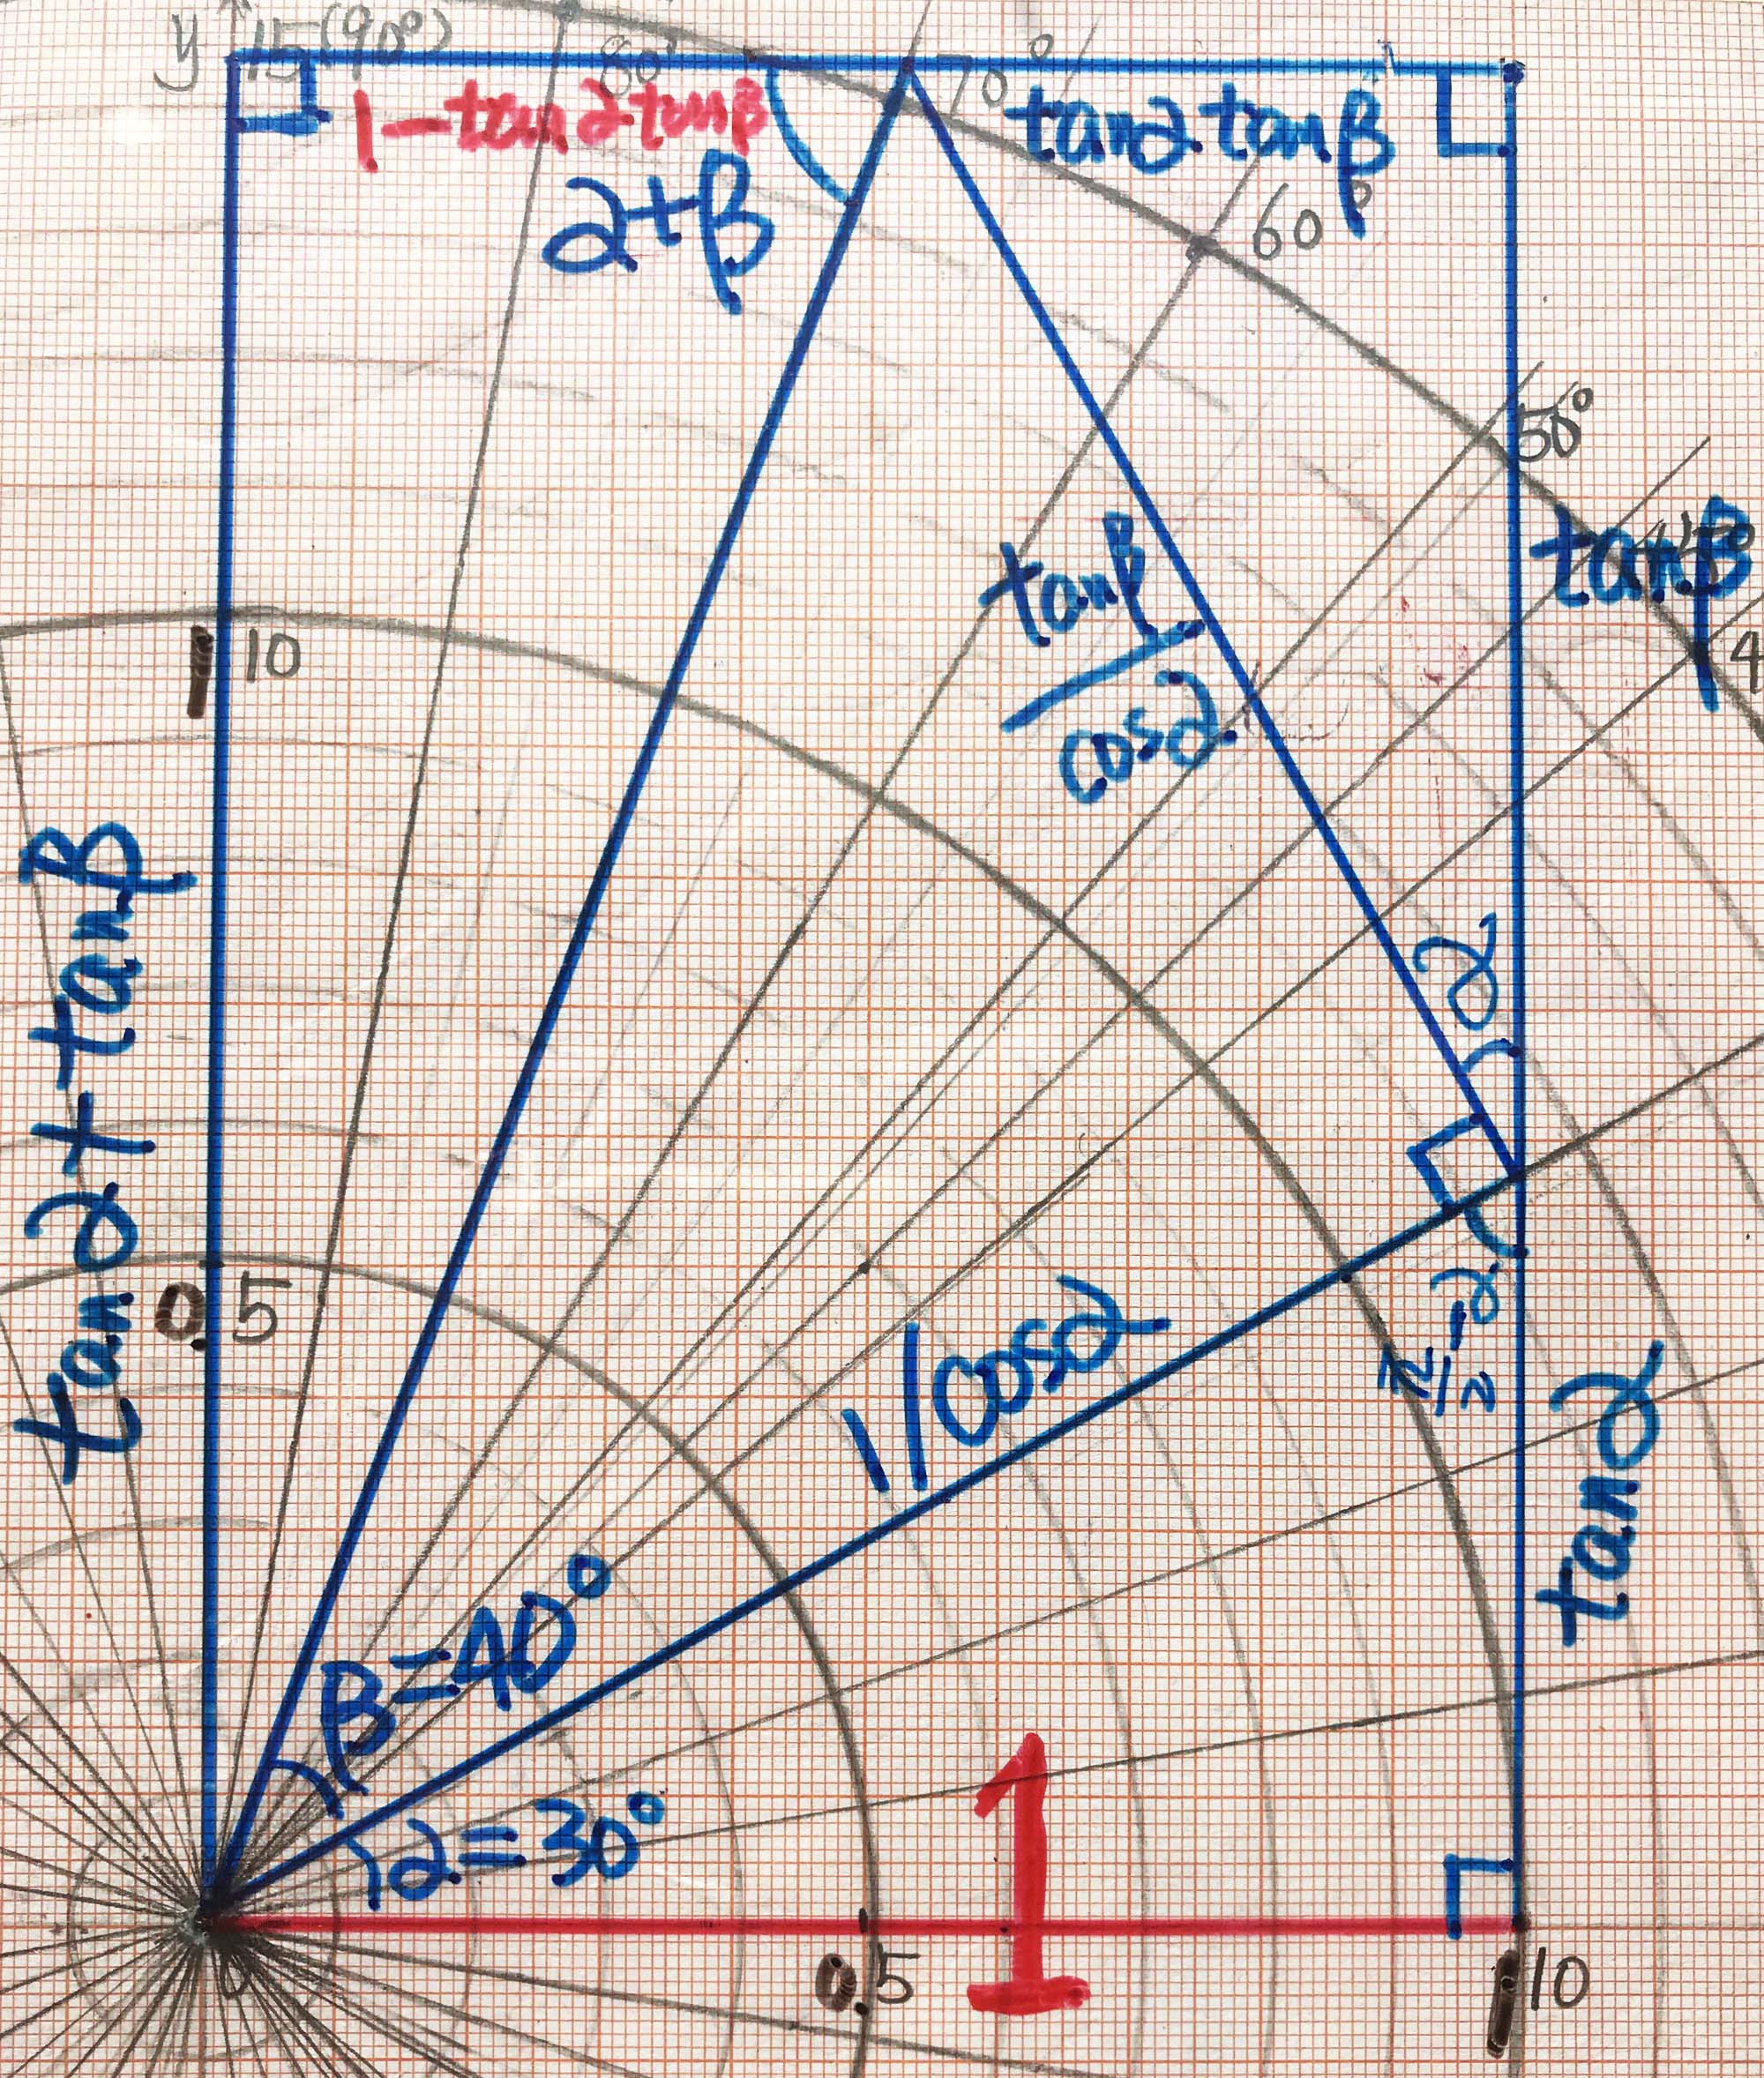 y
15(90°)
80°
70°
1-tanαtanβ
tanα.tanβ
α+β
60°
50°
45°
tanβ
4
tanβ
cosα
1
10
tanα+tanβ
α
0.5
π/2-α
1/cosα
tanα
β=40°
α=30°
1
0
0.5
1
10